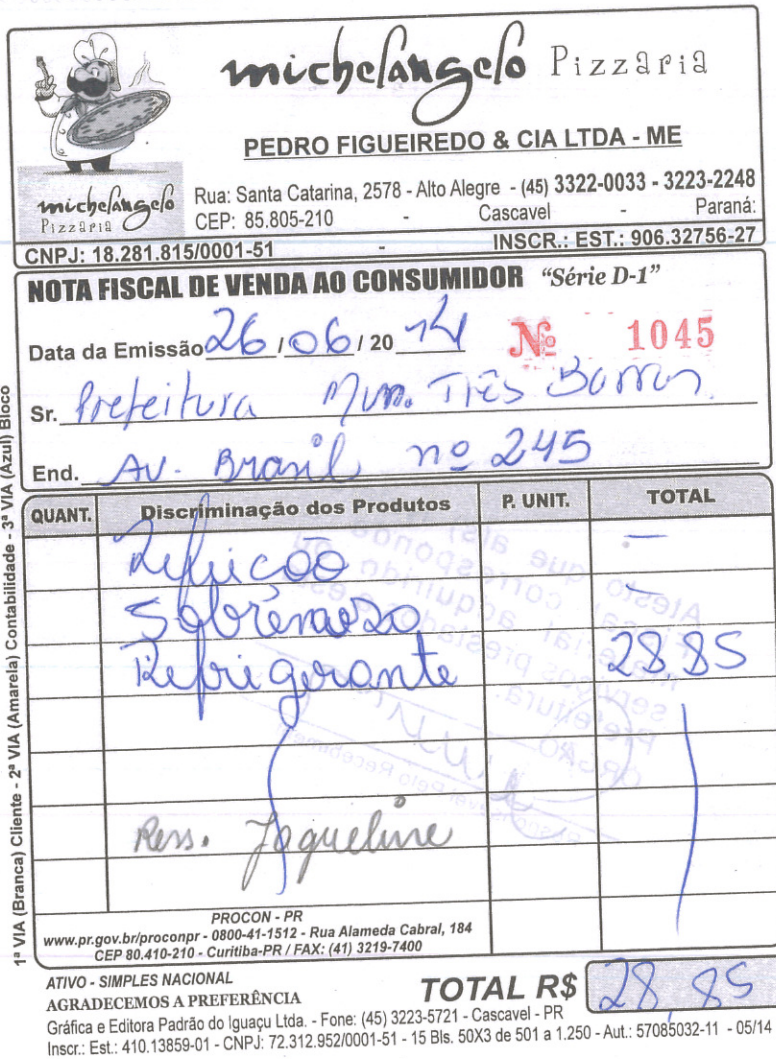 michelangelo Pizzaria
PEDRO FIGUEIREDO & CIA LTDA - ME
michelangelo
Pizzaria
Rua: Santa Catarina, 2578 - Alto Alegre - (45) 3322-0033 - 3223-2248
CEP: 85.805-210 - Cascavel - Paraná:
CNPJ: 18.281.815/0001-51 - INSCR.: EST.: 906.32756-27
NOTA FISCAL DE VENDA AO CONSUMIDOR "Série D-1"
Data da Emissão 26 / 06 / 20 14 Nº 1045
Sr. Prefeitura Mun. Três Barras
End. Av. Brasil nº 245
QUANT. Discriminação dos Produtos P. UNIT. TOTAL
Refeição —
Sobremesa —
Refrigerante 28,85
Ress. Jaqueline
PROCON - PR
www.pr.gov.br/proconpr - 0800-41-1512 - Rua Alameda Cabral, 184
CEP 80.410-210 - Curitiba-PR / FAX: (41) 3219-7400
ATIVO - SIMPLES NACIONAL
AGRADECEMOS A PREFERÊNCIA
TOTAL R$ 28,85
Gráfica e Editora Padrão do Iguaçu Ltda. - Fone: (45) 3223-5721 - Cascavel - PR
Inscr.: Est.: 410.13859-01 - CNPJ: 72.312.952/0001-51 - 15 Bls. 50X3 de 501 a 1.250 - Aut.: 57085032-11 - 05/14
1ª VIA (Branca) Cliente - 2ª VIA (Amarela) Contabilidade - 3ª VIA (Azul) Bloco